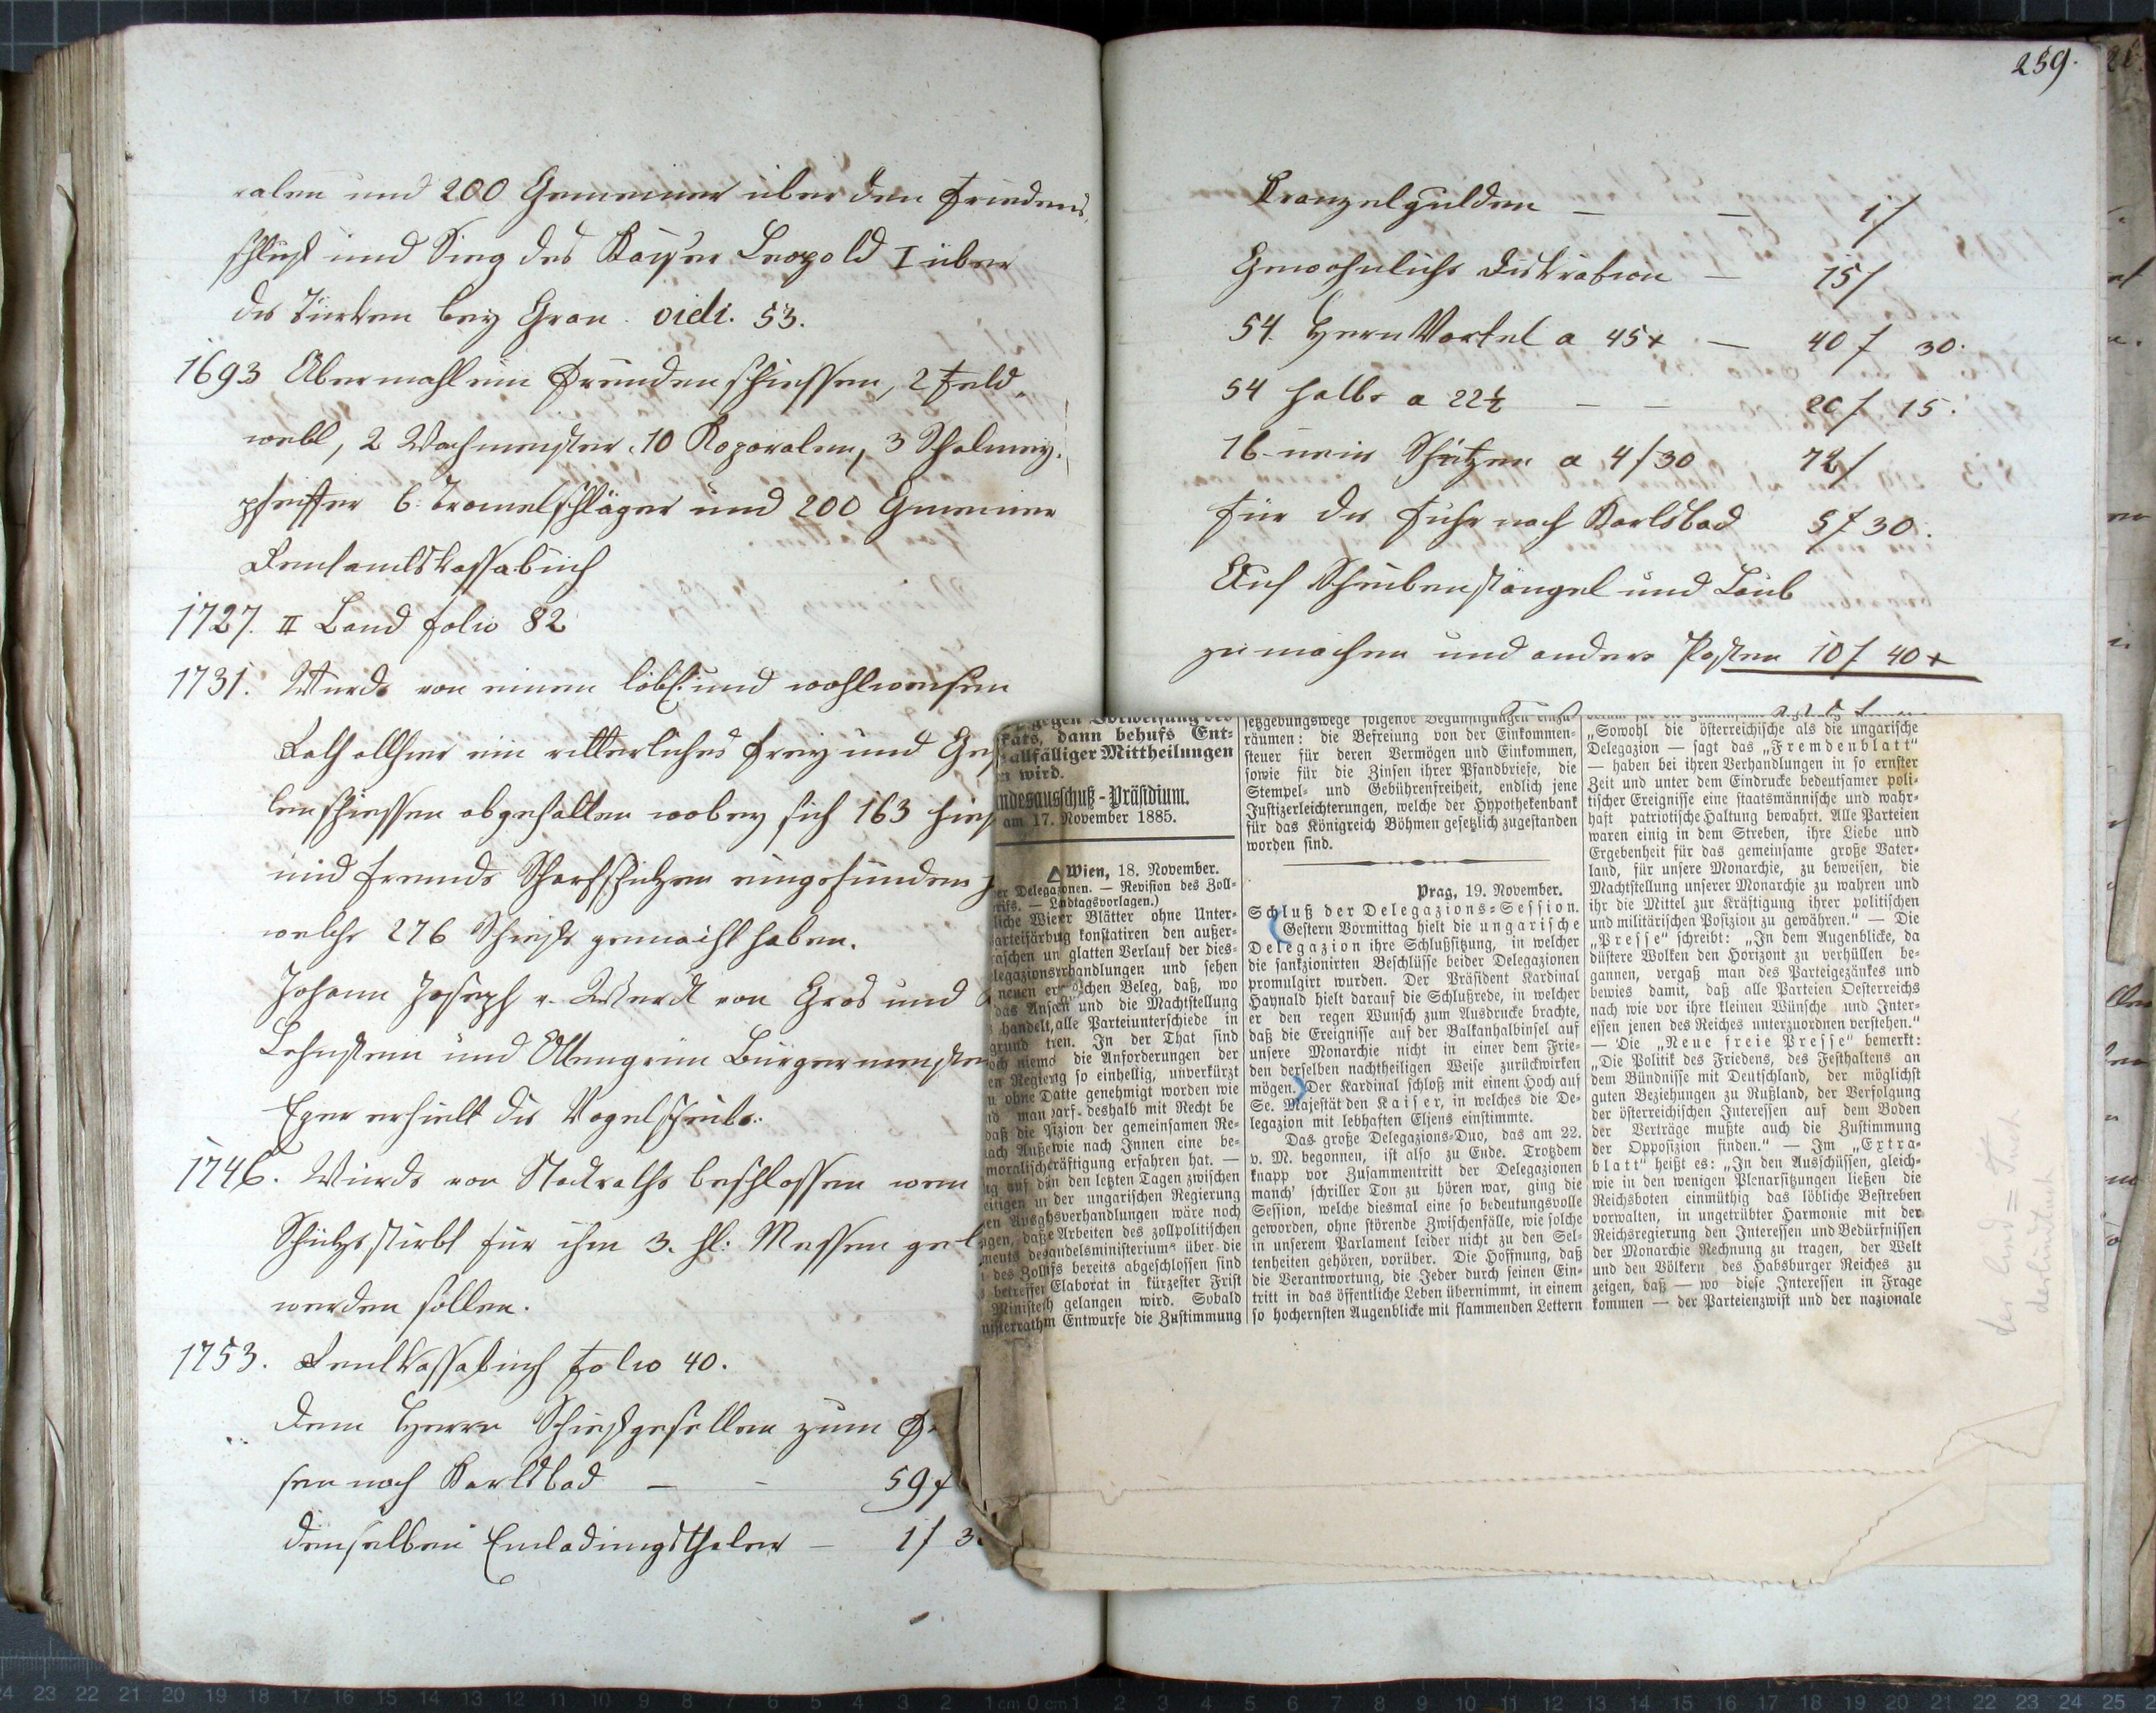 ralen und 200 Gemeiner über den Friedens,
schluß und Sieg des Kayser Leopold I über
die Türken bey Gran. vidi. 53.
1693 Abermahl ein Freudenschiessen, 2 Feld,
webl, 2 Wachmeister, 10 Koporalen, 3 Schalmey,
pfeiffer 6 Tromelschläger und 200 Gemeiner
Rentamtskassabuch
1727. II Band folio 82
1731. Wurde von einem löbl: und wohlweisen
Rath allhier ein ritterliches Frey und Ge
lenschiessen abgehalten wobey sich 163 hies
und fremde Scharfschützen eingefunden
welche 276 Schüsse gemacht haben.
Johann Joseph v. Werdt von Grad und
Lehnstein und Altengrün Burgermeister
Eger erhielt die Vogelscheibe.
1746. Wurde von Stadrathe beschlossen wen
Schütze stirbt für ihm 3. hl: Messen gel
werden sollen.
1753. Rentkassabuch folio 40.
Dem Herrn Schießgesellen zum
sen nach Karlsbad — — 59 f
denselben Einladungsthaler — 1 f 3
259.
Kranzelgulden — — 1 f
Gewohnliche Diskration — 15 f
54. Hern Vortel a 45 x — 40 f 30.
54 halbe a 22½ — — 20 f 15.
16 neie Schützen a 4 f 30 72 f
für die Fuhr nach Karlsbad 5 f 30.
Auf Scheibenstängel und Laub
zu machen und andere Posten 10 f 40 x
kats, dann behufs Ent-
allfälliger Mittheilungen
wird.
ndesausschuß-Präsidium.
am 17. November 1885.
Wien, 18. November.
er Delegazionen. — Revision des Zoll-
— Landtagsvorlagen.)
liche Wiener Blätter ohne Unter-
konstatiren den außer-
glatten Verlauf der dies-
legazionsverhandlungen und sehen
Beleg, daß, wo
und die Machtstellung
handelt, alle Parteiunterschiede in
In der That sind
die Anforderungen der
so einhellig, unverkürzt
genehmigt worden wie
deshalb mit Recht be
der gemeinsamen Re-
wie nach Innen eine be-
erfahren hat. —
den letzten Tagen zwischen
der ungarischen Regierung
wäre noch
Arbeiten des zollpolitischen
über die
bereits abgeschlossen sind
Elaborat in kürzester Frist
gelangen wird. Sobald
Entwurfe die Zustimmung
setzgebungswege folgende Begünstigungen einzu-
räumen: die Befreiung von der Einkommen-
steuer für deren Vermögen und Einkommen,
sowie für die Zinsen ihrer Pfandbriefe, die
Stempel- und Gebührenfreiheit, endlich jene
Justizerleichterungen, welche der Hypothekenbank
für das Königreich Böhmen gesetzlich zugestanden
worden sind.
Prag, 19. November.
Schluß der Delegazions-Session.
Gestern Vormittag hielt die ungarische
Delegazion ihre Schlußsitzung, in welcher
die sankzionirten Beschlüsse beider Delegazionen
promulgirt wurden. Der Präsident Kardinal
Haynald hielt darauf die Schlußrede, in welcher
er den regen Wunsch zum Ausdrucke brachte,
daß die Ereignisse auf der Balkanhalbinsel auf
unsere Monarchie nicht in einer dem Frie-
den derselben nachtheiligen Weise zurückwirken
mögen. Der Kardinal schloß mit einem Hoch auf
Se. Majestät den Kaiser, in welches die De-
legazion mit lebhaften Eljens einstimmte.
Das große Delegazions-Duo, das am 22.
v. M. begonnen, ist also zu Ende. Trotzdem
knapp vor Zusammentritt der Delegazionen
manch' schriller Ton zu hören war, ging die
Session, welche diesmal eine so bedeutungsvolle
geworden, ohne störende Zwischenfälle, wie solche
in unserem Parlament leider nicht zu den Sel-
tenheiten gehören, vorüber. Die Hoffnung, daß
die Verantwortung, die Jeder durch seinen Ein-
tritt in das öffentliche Leben übernimmt, in einem
so hochernsten Augenblicke mit flammenden Lettern
„Sowohl die österreichische als die ungarische
Delegazion — sagt das „Fremdenblatt"
— haben bei ihren Verhandlungen in so ernster
Zeit und unter dem Eindrucke bedeutsamer poli-
tischer Ereignisse eine staatsmännische und wahr-
haft patriotische Haltung bewahrt. Alle Parteien
waren einig in dem Streben, ihre Liebe und
Ergebenheit für das gemeinsame große Vater-
land, für unsere Monarchie, zu beweisen, die
Machtstellung unserer Monarchie zu wahren und
ihr die Mittel zur Kräftigung ihrer politischen
und militärischen Posizion zu gewähren." — Die
„Presse" schreibt: „In dem Augenblicke, da
düstere Wolken den Horizont zu verhüllen be-
gannen, vergaß man des Parteigezänkes und
bewies damit, daß alle Parteien Oesterreichs
nach wie vor ihre kleinen Wünsche und Inter-
essen jenen des Reiches unterzuordnen verstehen."
— Die „Neue freie Presse" bemerkt:
„Die Politik des Friedens, des Festhaltens an
dem Bündnisse mit Deutschland, der möglichst
guten Beziehungen zu Rußland, der Verfolgung
der österreichischen Interessen auf dem Boden
der Verträge mußte auch die Zustimmung
der Opposition finden." — Im „Extra-
blatt" heißt es: „In den Ausschüssen, gleich-
wie in den wenigen Plenarsitzungen ließen die
Reichsboten einmüthig das löbliche Bestreben
vorwalten, in ungetrübter Harmonie mit der
Reichsregierung den Interessen und Bedürfnissen
der Monarchie Rechnung zu tragen, der Welt
und den Völkern des Habsburger Reiches zu
zeigen, daß — wo diese Interessen in Frage
kommen — der Parteienzwist und der nazionale